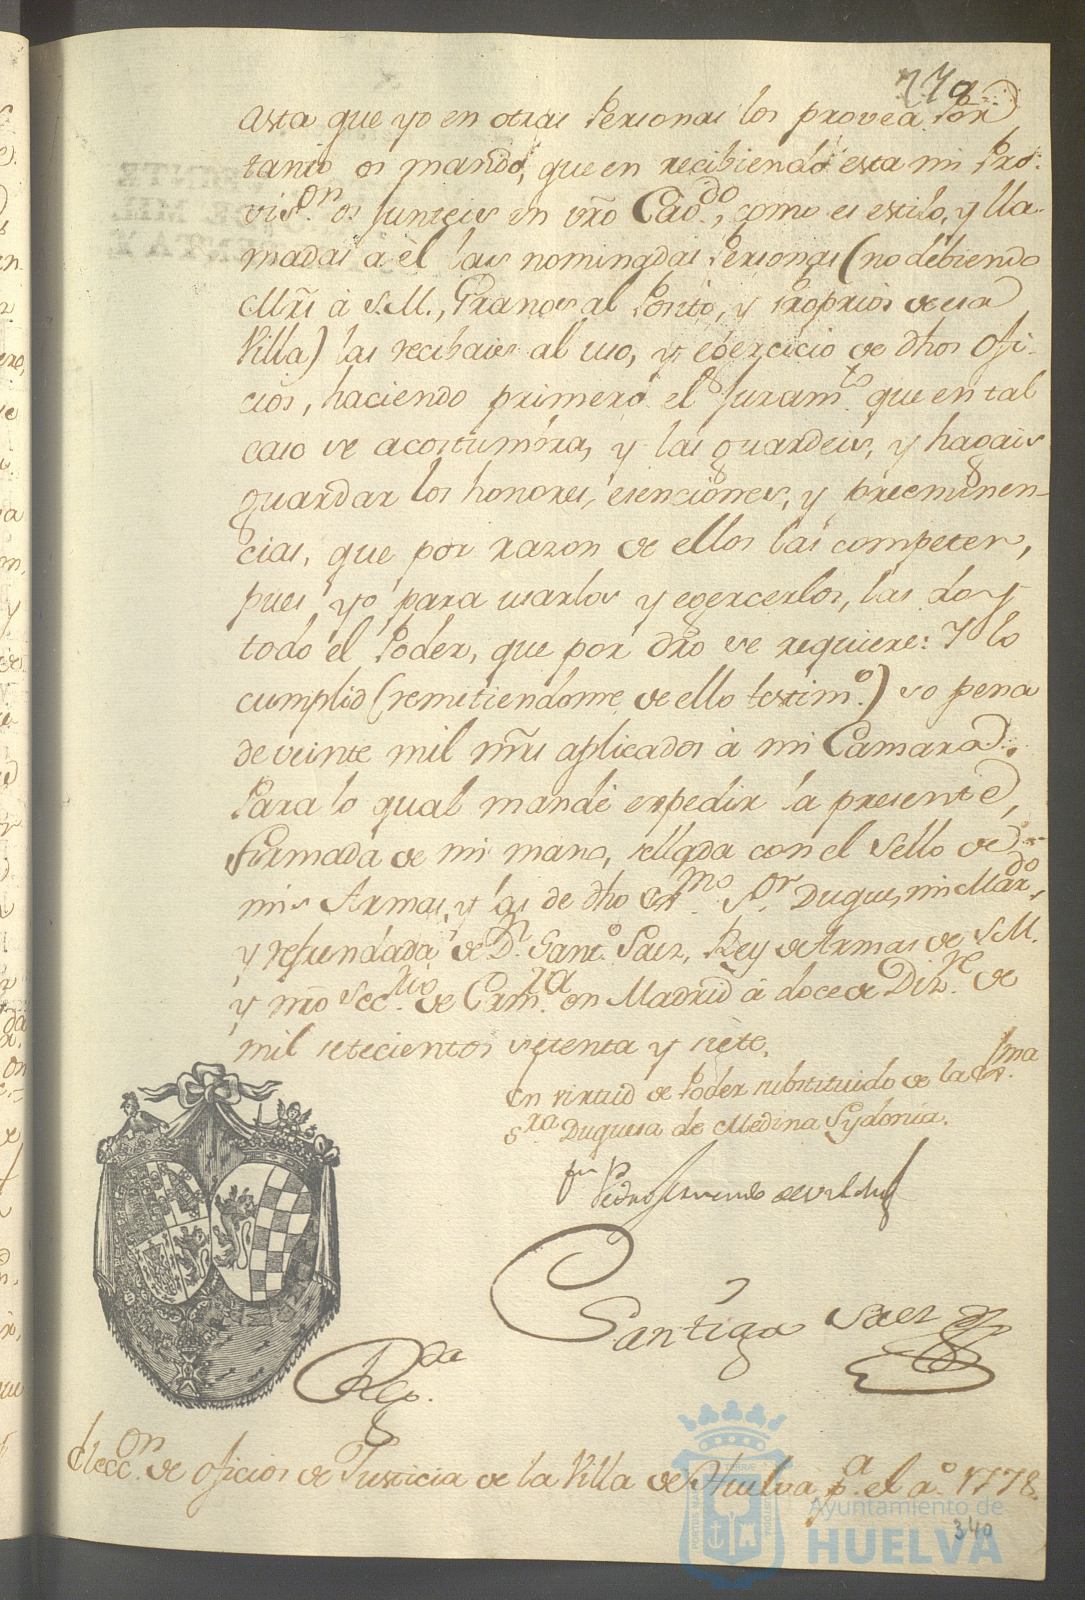 asta que yo en otras Personas los provea. Por
tanto os mando, que en recibiendo esta mi Pro-
vis.on os junteis en vro Cav.do, como es estilo, y lla-
madas à èl las nominadas Personas (no debiendo
Mrs à S.M., Granos al Posito, y Proprios de esa
Villa) las recibais al uso, y egercicio de dhos Ofi-
cios, haciendo primero el Juram.to que en tal
caso se acostumbra, y las guardeis, y hagais
guardar los honores, esenciones, y preeminen-
cias, que por razon de ellos las competen,
pues yo para usarlos y egercerlos, las doy
todo el Poder, que por dro se requiere: Y lo
cumplid (remitiendome de ello testim.o) so pena
de veinte mil mrs aplicados à mi Camara.
Para lo qual mandè expedir la presente,
firmada de mi mano, sellada con el Sello de
mis Armas, y las de dho Ex.mo S.or Duque, mi Mar.do,
y refrendada de D.n Sant.o Saez, Rey de Armas de S.M.
y mro Sec.rio de Cam.ra en Madrid à doce de Diz.re de
mil setecientos setenta y siete.
En virtud de Poder substituido de la Ex.ma
S.ra Duquesa de Medina Sydonia.
Pedro
Santiago Saez
Reg.da
Elecc.on de oficios de Justicia de la Villa de Huelva p.a el a.o 1778.
Ayuntamiento de
340
HUELVA